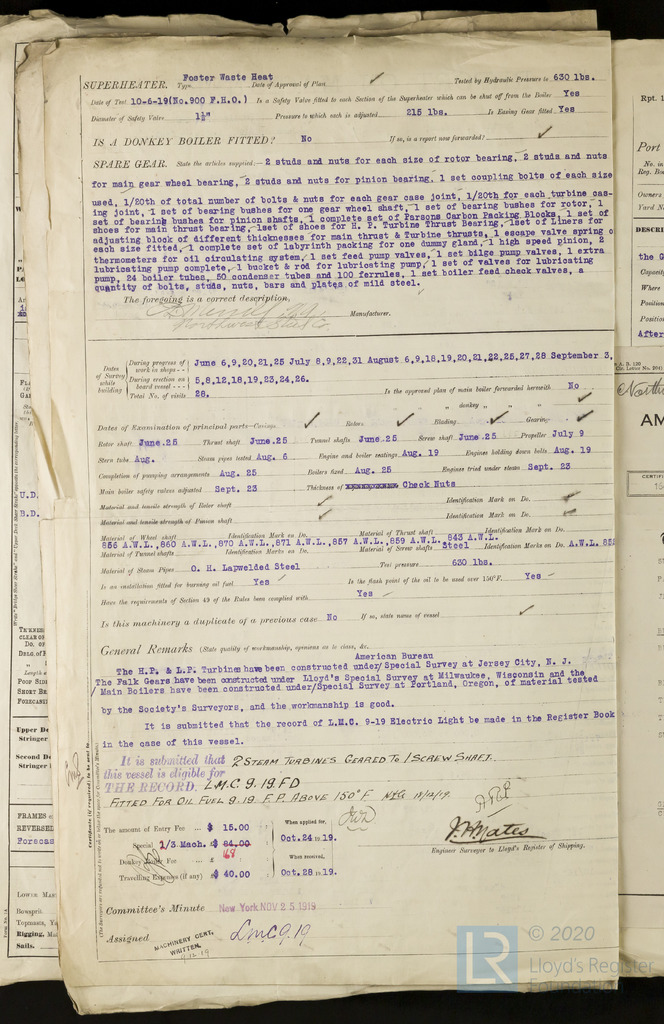 SUPERHEATER. Type Foster Waste Heat Date of Approval of Plan ✓ Tested by Hydraulic Pressure to 630 lbs.
Date of Test 10-6-19(No.900 F.H.O.) Is a Safety Valve fitted to each Section of the Superheater which can be shut off from the Boiler Yes
Diameter of Safety Valve 1½" Pressure to which each is adjusted 215 lbs. Is Easing Gear fitted Yes
IS A DONKEY BOILER FITTED? No If so, is a report now forwarded? ✓
SPARE GEAR. State the articles supplied:— 2 studs and nuts for each size of rotor bearing, 2 studs and nuts
for main gear wheel bearing, 2 studs and nuts for pinion bearing, 1 set coupling bolts of each size
used, 1/20th of total number of bolts & nuts for each gear case joint, 1/20th for each turbine cas-
ing joint, 1 set of bearing bushes for one gear wheel shaft, 1 set of bearing bushes for rotor, 1
set of bearing bushes for pinion shafts, 1 complete set of Parsons Carbon Packing Blocks, 1 set of
shoes for main thrust bearing, 1set of shoes for H. P. Turbine Thrust Bearing, 1set of Liners for
adjusting block of different thicknesses for main thrust & Turbine thrusts, 1 escape valve spring o
each size fitted, 1 complete set of labyrinth packing for one dummy gland, 1 high speed pinion, 2
thermometers for oil circulating system, 1 set feed pump valves, 1 set bilge pump valves, 1 extra
lubricating pump complete, 1 bucket & rod for lubricating pump, 1 set of valves for lubricating
pump, 24 boiler tubes, 50 condenser tubes and 100 ferrules, 1 set boiler feed check valves, a
quantity of bolts, studs, nuts, bars and plates of mild steel.
The foregoing is a correct description,
Northwest Steel Co. Manufacturer.
Dates of Survey while building
During progress of work in shops - - June 6,9,20,21,25 July 8,9,22,31 August 6,9,18,19,20,21,22,25,27,28 September 3,
During erection on board vessel - - - 5,8,12,18,19,23,24,26.
Total No. of visits 28. Is the approved plan of main boiler forwarded herewith No
" " " donkey " " " ✓
Dates of Examination of principal parts—Casings ✓ Rotors ✓ Blading ✓ Gearing ✓
Rotor shaft June.25 Thrust shaft June.25 Tunnel shafts June.25 Screw shaft June.25 Propeller July 9
Stern tube Aug. Steam pipes tested Aug. 6 Engine and boiler seatings Aug. 19 Engines holding down bolts Aug. 19
Completion of pumping arrangements Aug. 25 Boilers fixed Aug. 25 Engines tried under steam Sept. 23
Main boiler safety valves adjusted Sept. 23 Thickness of Check Nuts
Material and tensile strength of Rotor shaft ✓ Identification Mark on Do. ✓
Material and tensile strength of Pinion shaft ✓ Identification Mark on Do. ✓
Material of Wheel shaft Identification Mark on Do. Material of Thrust shaft Identification Mark on Do.
856 A.W.L.,860 A.W.L.,870 A.W.L.,871 A.W.L.,857 A.W.L.,859 A.W.L. 843 A.W.L.
Material of Tunnel shafts Identification Marks on Do. Material of Screw shafts Steel Identification Marks on Do. A.W.L.
Material of Steam Pipes O. H. Lapwelded Steel Test pressure 630 lbs.
Is an installation fitted for burning oil fuel Yes Is the flash point of the oil to be used over 150°F. Yes
Have the requirements of Section 49 of the Rules been complied with Yes
Is this machinery a duplicate of a previous case No If so, state name of vessel ✓
General Remarks (State quality of workmanship, opinions as to class, &c.
American Bureau
The H.P. & L.P. Turbines have been constructed under/Special Survey at Jersey City, N. J.
The Falk Gears have been constructed under Lloyd's Special Survey at Milwaukee, Wisconsin and the
/ Main Boilers have been constructed under/Special Survey at Portland, Oregon, of material tested
by the Society's Surveyors, and the workmanship is good.
It is submitted that the record of L.M.C. 9-19 Electric Light be made in the Register Book
in the case of this vessel.
It is submitted that 2 STEAM TURBINES GEARED TO 1 SCREW SHAFT.
this vessel is eligible for
THE RECORD. L.M.C. 9.19. FD
FITTED FOR OIL FUEL 9.19 F.P. ABOVE 150°F
The amount of Entry Fee .. $ 15.00 When applied for,
Special 1/3 Mach. $ 84.00 Oct.24.19.
168
Donkey Boiler Fee ... £ When received,
Travelling Expenses (if any) $ 40.00 Oct.28.19.
Engineer Surveyor to Lloyd's Register of Shipping.
Committee's Minute New York NOV 25 1919
Assigned L.M.C 9.19
MACHINERY CERT. WRITTEN.
LR © 2020
Lloyd's Register
Foundation
Rpt. 1
Port
Owners
Yard N
DESCRI
the G
Capacity
Where
Position
Position
After
AM
CERTIF
U.D.
B.D.
Upper De
Stringer
Second De
Stringer
FRAMES
REVERSED
Forecas
LOWER MAS
Bowsprit.
Topmasts,
Rigging,
Sails.